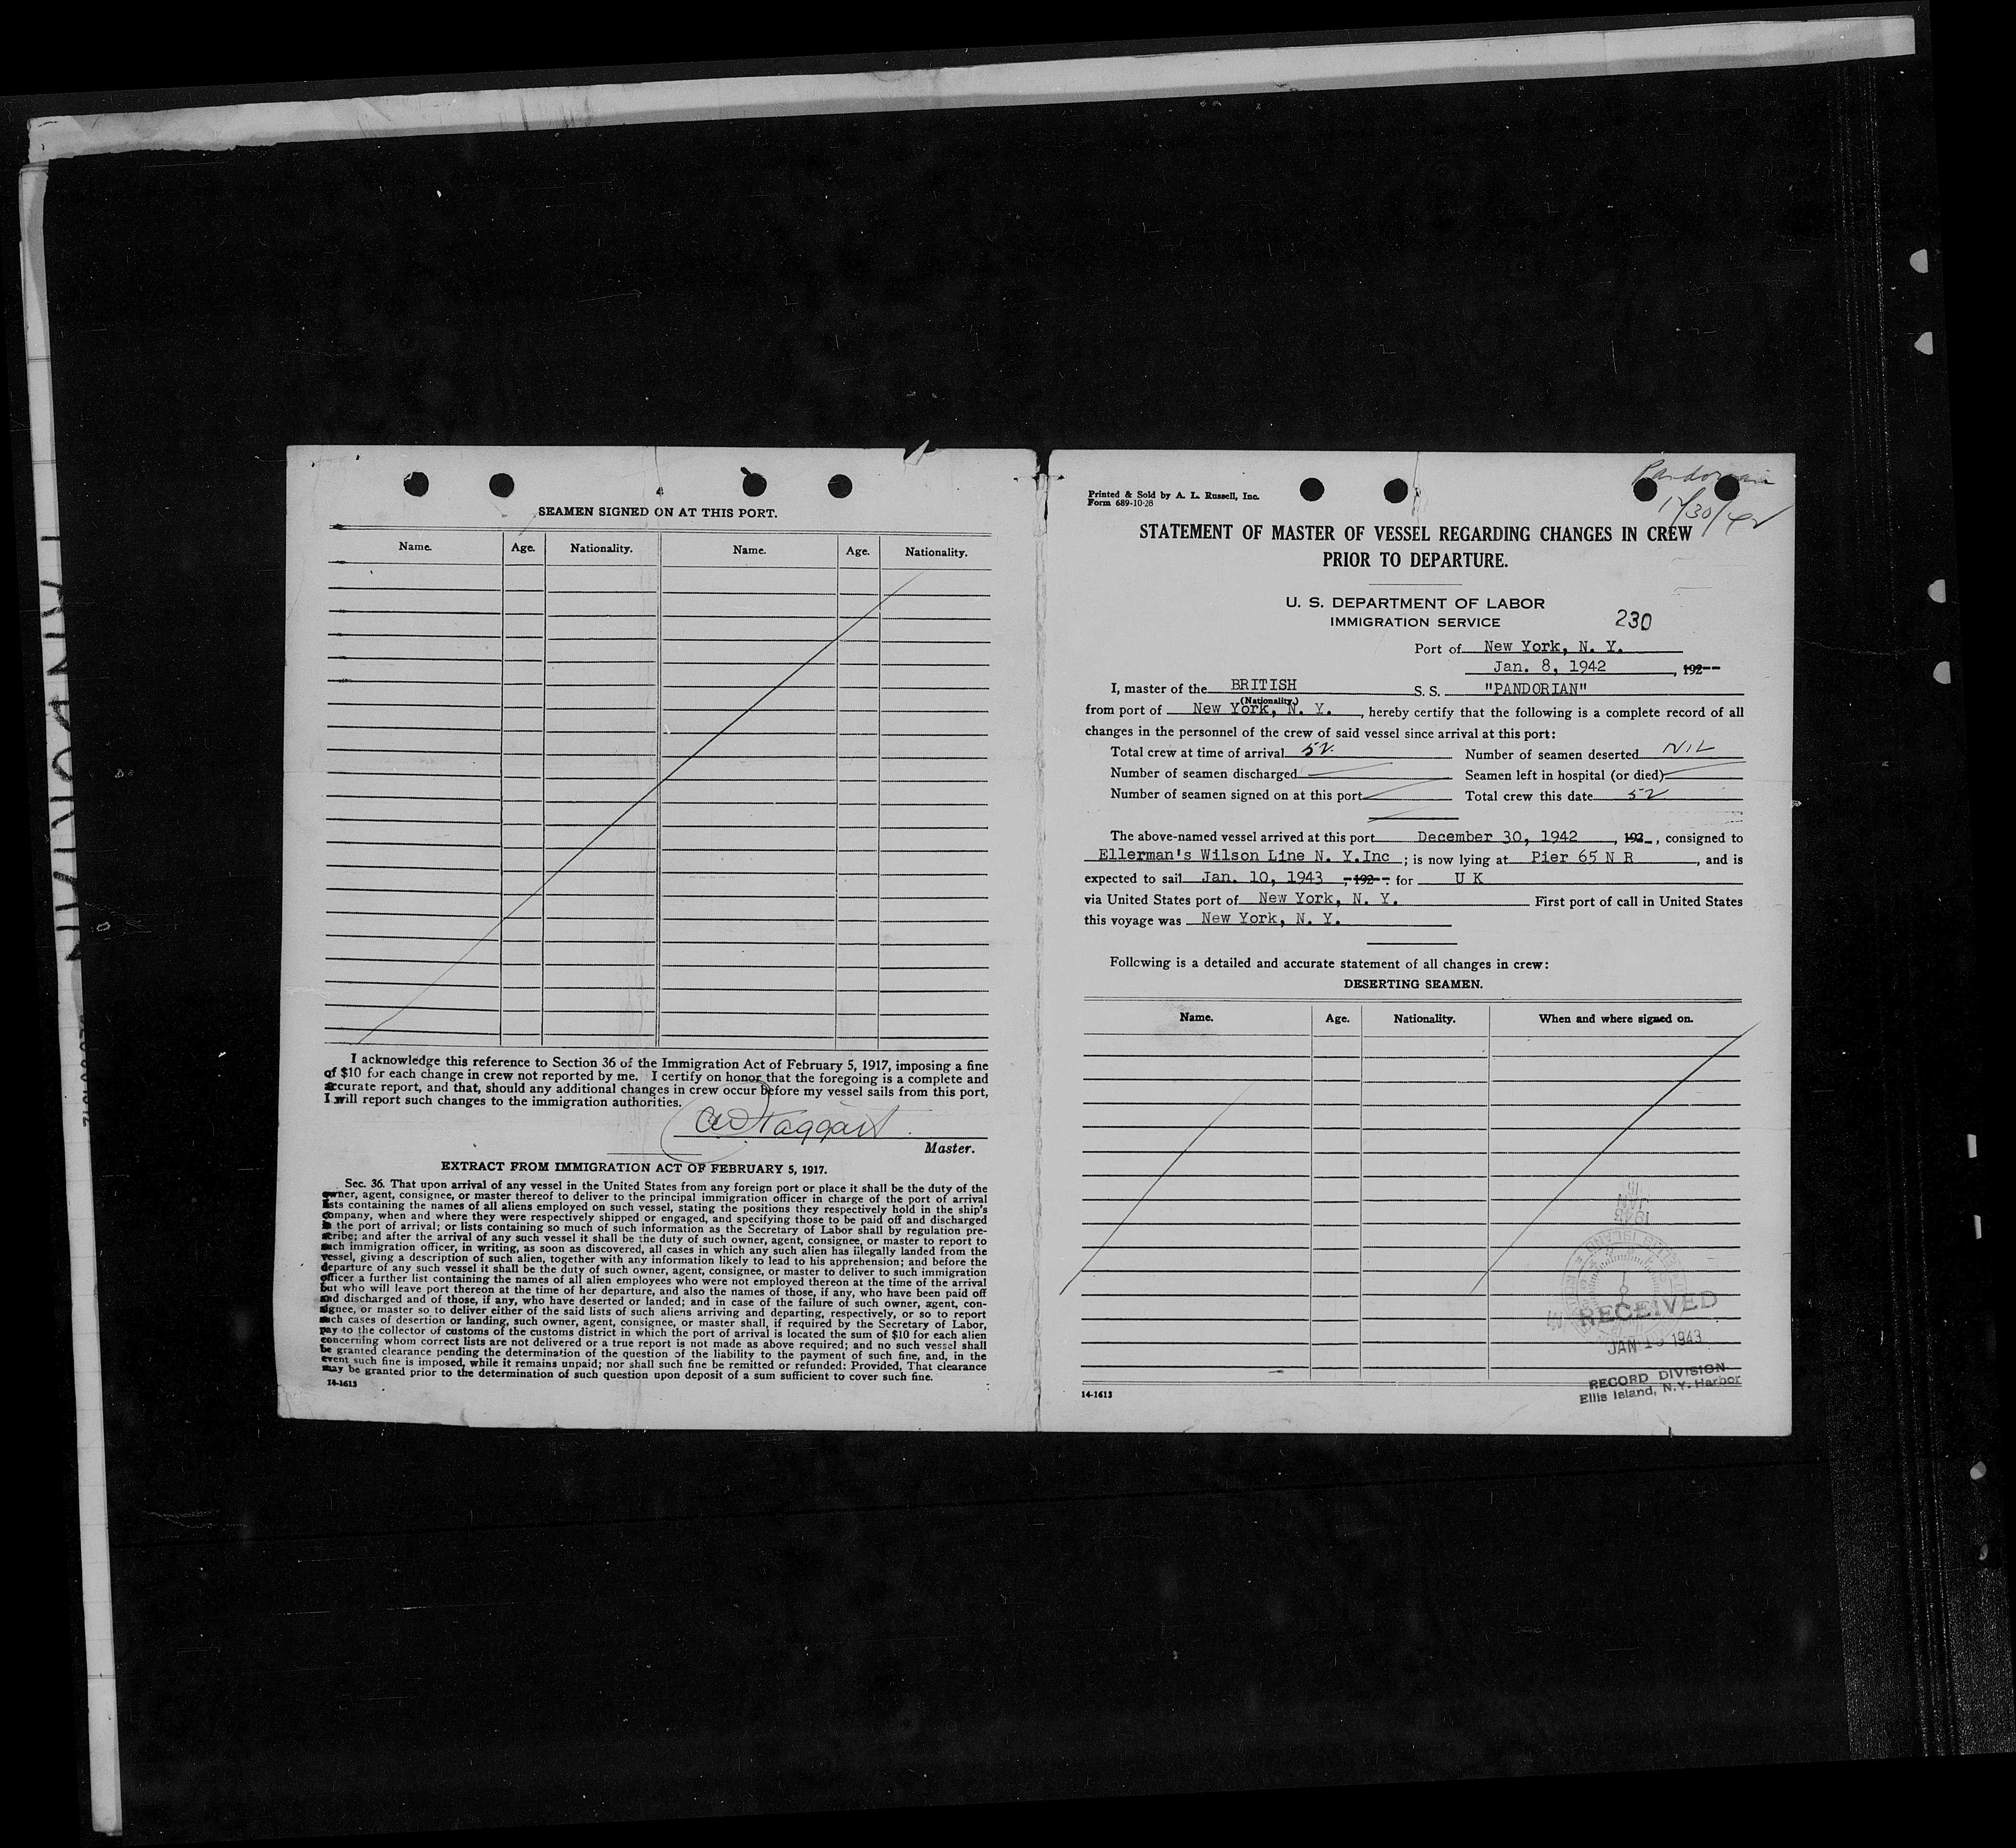 SEAMEN SIGNED ON AT THIS PORT.
Name. Age. Nationality. Name. Age. Nationality.
I acknowledge this reference to Section 36 of the Immigration Act of February 5, 1917, imposing a fine
of $10 for each change in crew not reported by me. I certify on honor that the foregoing is a complete and
accurate report, and that, should any additional changes in crew occur before my vessel sails from this port,
I will report such changes to the immigration authorities.
Taggart
Master.
EXTRACT FROM IMMIGRATION ACT OF FEBRUARY 5, 1917.
Sec. 36. That upon arrival of any vessel in the United States from any foreign port or place it shall be the duty of the
owner, agent, consignee, or master thereof to deliver to the principal immigration officer in charge of the port of arrival
lists containing the names of all aliens employed on such vessel, stating the positions they respectively hold in the ship's
company, when and where they were respectively shipped or engaged, and specifying those to be paid off and discharged
in the port of arrival; or lists containing so much of such information as the Secretary of Labor shall by regulation pre-
scribe; and after the arrival of any such vessel it shall be the duty of such owner, agent, consignee, or master to report to
such immigration officer, in writing, as soon as discovered, all cases in which any such alien has illegally landed from the
vessel, giving a description of such alien, together with any information likely to lead to his apprehension; and before the
departure of any such vessel it shall be the duty of such owner, agent, consignee, or master to deliver to such immigration
officer a further list containing the names of all alien employees who were not employed thereon at the time of the arrival
but who will leave port thereon at the time of her departure, and also the names of those, if any, who have been paid off
and discharged and of those, if any, who have deserted or landed; and in case of the failure of such owner, agent, con-
signee, or master so to deliver either of the said lists of such aliens arriving and departing, respectively, or so to report
such cases of desertion or landing, such owner, agent, consignee, or master shall, if required by the Secretary of Labor,
pay to the collector of customs of the customs district in which the port of arrival is located the sum of $10 for each alien
concerning whom correct lists are not delivered or a true report is not made as above required; and no such vessel shall
be granted clearance pending the determination of the question of the liability to the payment of such fine, and, in the
event such fine is imposed, while it remains unpaid; nor shall such fine be remitted or refunded: Provided, That clearance
may be granted prior to the determination of such question upon deposit of a sum sufficient to cover such fine.
14-1613
Pandorian
12/30/42
Printed & Sold by A. L. Russell, Inc.
Form 689-10-28
STATEMENT OF MASTER OF VESSEL REGARDING CHANGES IN CREW
PRIOR TO DEPARTURE.
U. S. DEPARTMENT OF LABOR
IMMIGRATION SERVICE
230
Port of New York, N. Y.
Jan. 8, 1942, 192
I, master of the BRITISH S. S. "PANDORIAN"
(Nationality.)
from port of New York, N. Y., hereby certify that the following is a complete record of all
changes in the personnel of the crew of said vessel since arrival at this port:
Total crew at time of arrival 52 Number of seamen deserted NIL
Number of seamen discharged Seamen left in hospital (or died)
Number of seamen signed on at this port Total crew this date 52
The above-named vessel arrived at this port December 30, 1942, 192, consigned to
Ellerman's Wilson Line N. Y.Inc; is now lying at Pier 65 N R, and is
expected to sail Jan. 10, 1943, 192 for U K
via United States port of New York, N. Y. First port of call in United States
this voyage was New York, N. Y.
Following is a detailed and accurate statement of all changes in crew:
DESERTING SEAMEN.
Name. Age. Nationality. When and where signed on.
RECEIVED
JAN 1943
RECORD DIVISION
Ellis Island, N.Y. Harbor
14-1613